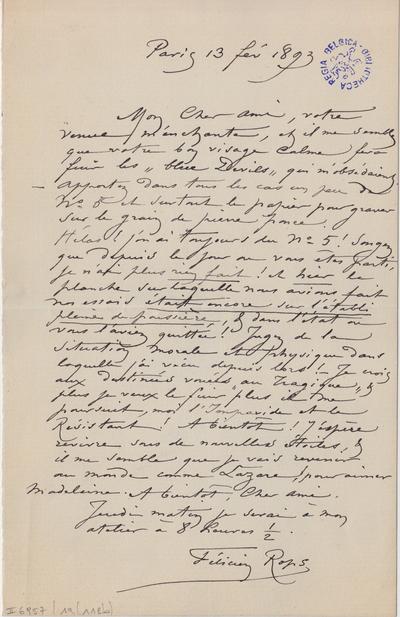 Paris 13 fév 1893
REGIA BELGICA BIBLIOTHECA
Mon Cher Ami, votre
venue m'enchante, et il me semble
que votre bon visage calme fera
fuir les "blue Devils" qui m'obsédaient.
Apportez dans tous les cas un peu de
No 8 et surtout le papier pour graver
sur le grain de pierre ponce.
Hélas! j'en ai toujours du No 5! Songez
que depuis le jour où vous êtes parti,
je n'ai plus rien fait! Et hier la
planche sur laquelle nous avions fait
nos essais était encore sur l'établi
pleine de poussière, & dans l'état où
vous l'aviez quittée! Jugez de la
situation morale et physique dans
laquelle j'ai vécu depuis lors! – Je crois
aux destinées vouées "au Tragique", &
plus je veux le fuir plus il me
poursuit, moi l'Impavide et le
Résistant! A bientôt! J'espère
revivre sous de nouvelles étoiles, &
il me semble que je vais revenir
au monde comme Lazare, pour aimer
Madeleine. A bientôt, Cher Ami.
Jeudi matin je serai à mon
atelier à 8 heures 1/2.
Félicien Rops
II 6957 / 19 (118b)